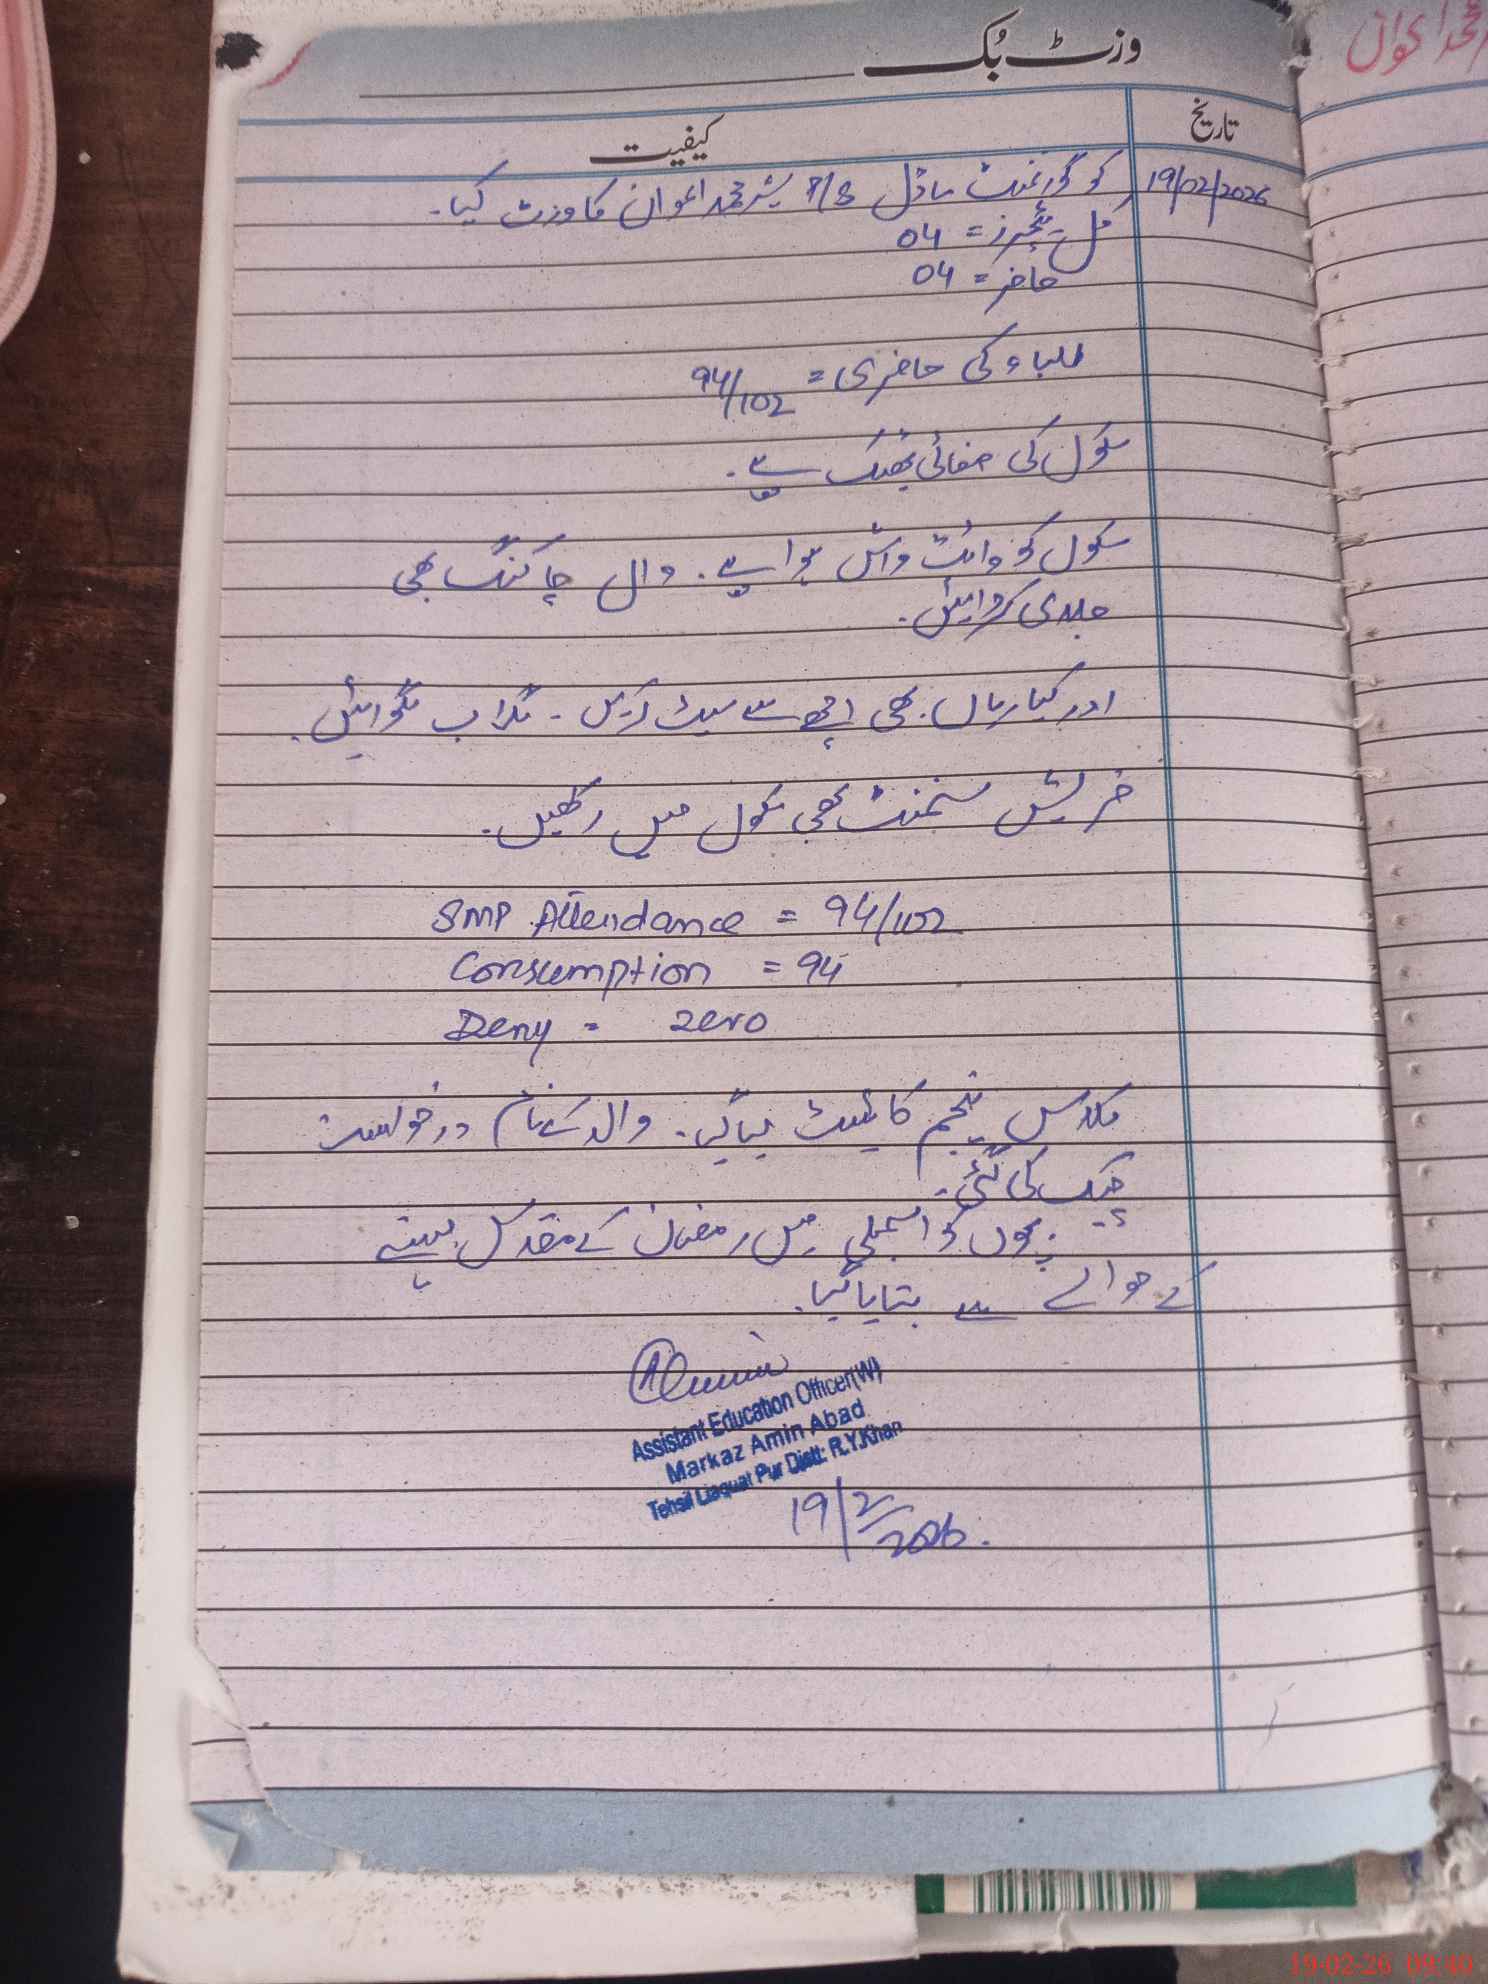 وزٹ بُک
تاریخ
کیفیت
19/02/2026
کو گورنمنٹ ماڈل P/S شیر محمد اعوان کا وزٹ کیا۔
کل ٹیچرز = 04
حاضر = 04
طلباء کی حاضری = 94/102
سکول کی صفائی ٹھیک ہے۔
سکول کو وائٹ واش ہوا ہے۔ وال چاکنگ بھی
جلدی کروائیں۔
اور کیاریاں بھی اچھے سے سیٹ کریں۔ گلاب لگوائیں۔
فریش سٹمنٹ بھی سکول میں رکھیں۔
SMP Attendance = 94/102
Consumption = 94
Deny = zero
کلاس پنجم کا ٹیسٹ لیا گیا۔ والد کے نام درخواست
چیک کی گئی۔
بچوں کو اسمبلی میں رمضان کے مقدس مہینے
کے حوالے سے بتایا گیا۔
Assistant Education Officer(W)
Markaz Amin Abad
Tehsil Liaquat Pur Distt: R.Y.Khan
19/2/2026.
محمد اعوان
19-02-26 09:40